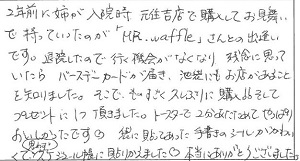 2年前に姉が入院時 元住吉店で購入してお見舞い
で持っていたのが「HR.waffle」さんとの出逢い
です。退院したので行く機会がなくなり 残念に思って
いたら バースデーカードが届き、池袋にもお店があること
を知りました。そこで、ものすごく久しぶりに購入 そして
プレゼントに1つ 頂きました。トースターで2分あたためて やっぱり
おいしかったです 袋に貼ってあった 手書きのシールがかわいく
思わず スケジュール帳に貼りかえました ありがとうございました